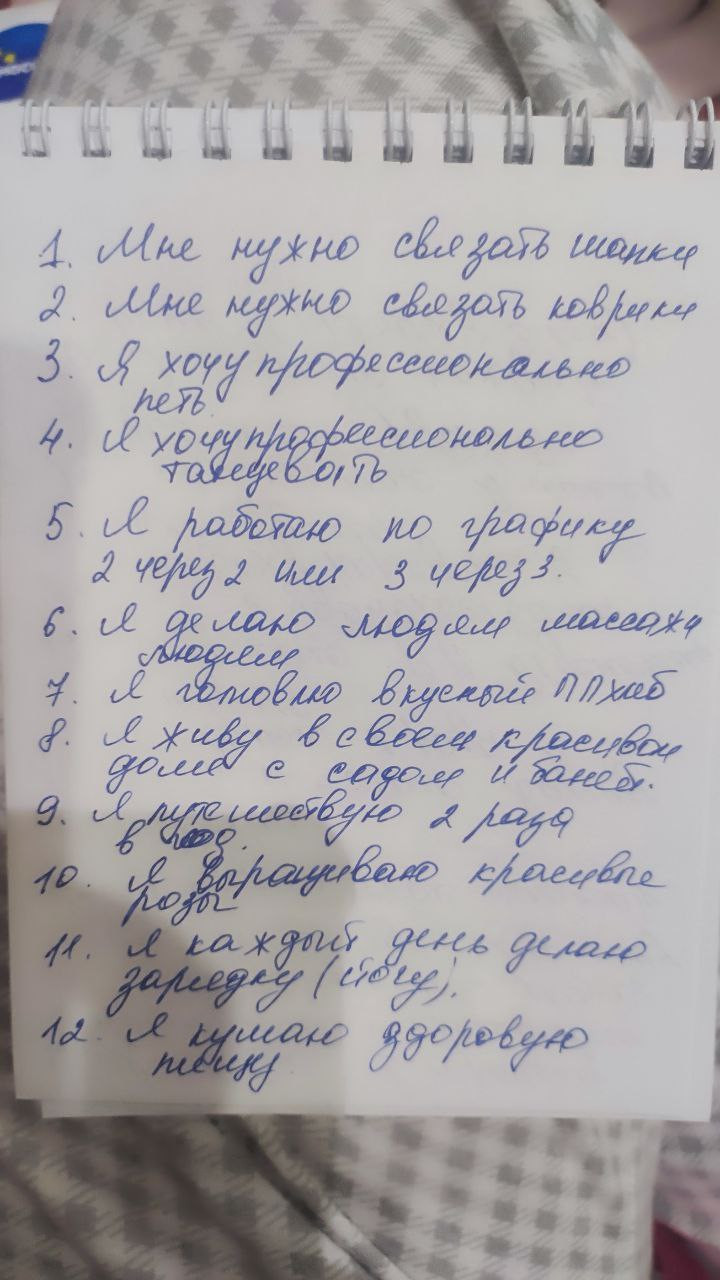 1. Мне нужно связать шапки
2. Мне нужно связать коврики
3. Я хочу профессионально
петь.
4. Я хочу профессионально
танцевать
5. Я работаю по графику
2 через 2 или 3 через 3.
6. Я делаю людям массажи
людям
7. Я готовлю вкусный ПП хлеб
8. Я живу в своем красивом
доме с садом и баней.
9. Я путешествую 2 раза
в год.
10. Я выращиваю красивые
розы
11. Я каждый день делаю
зарядку (йогу).
12. Я кушаю здоровую
пищу